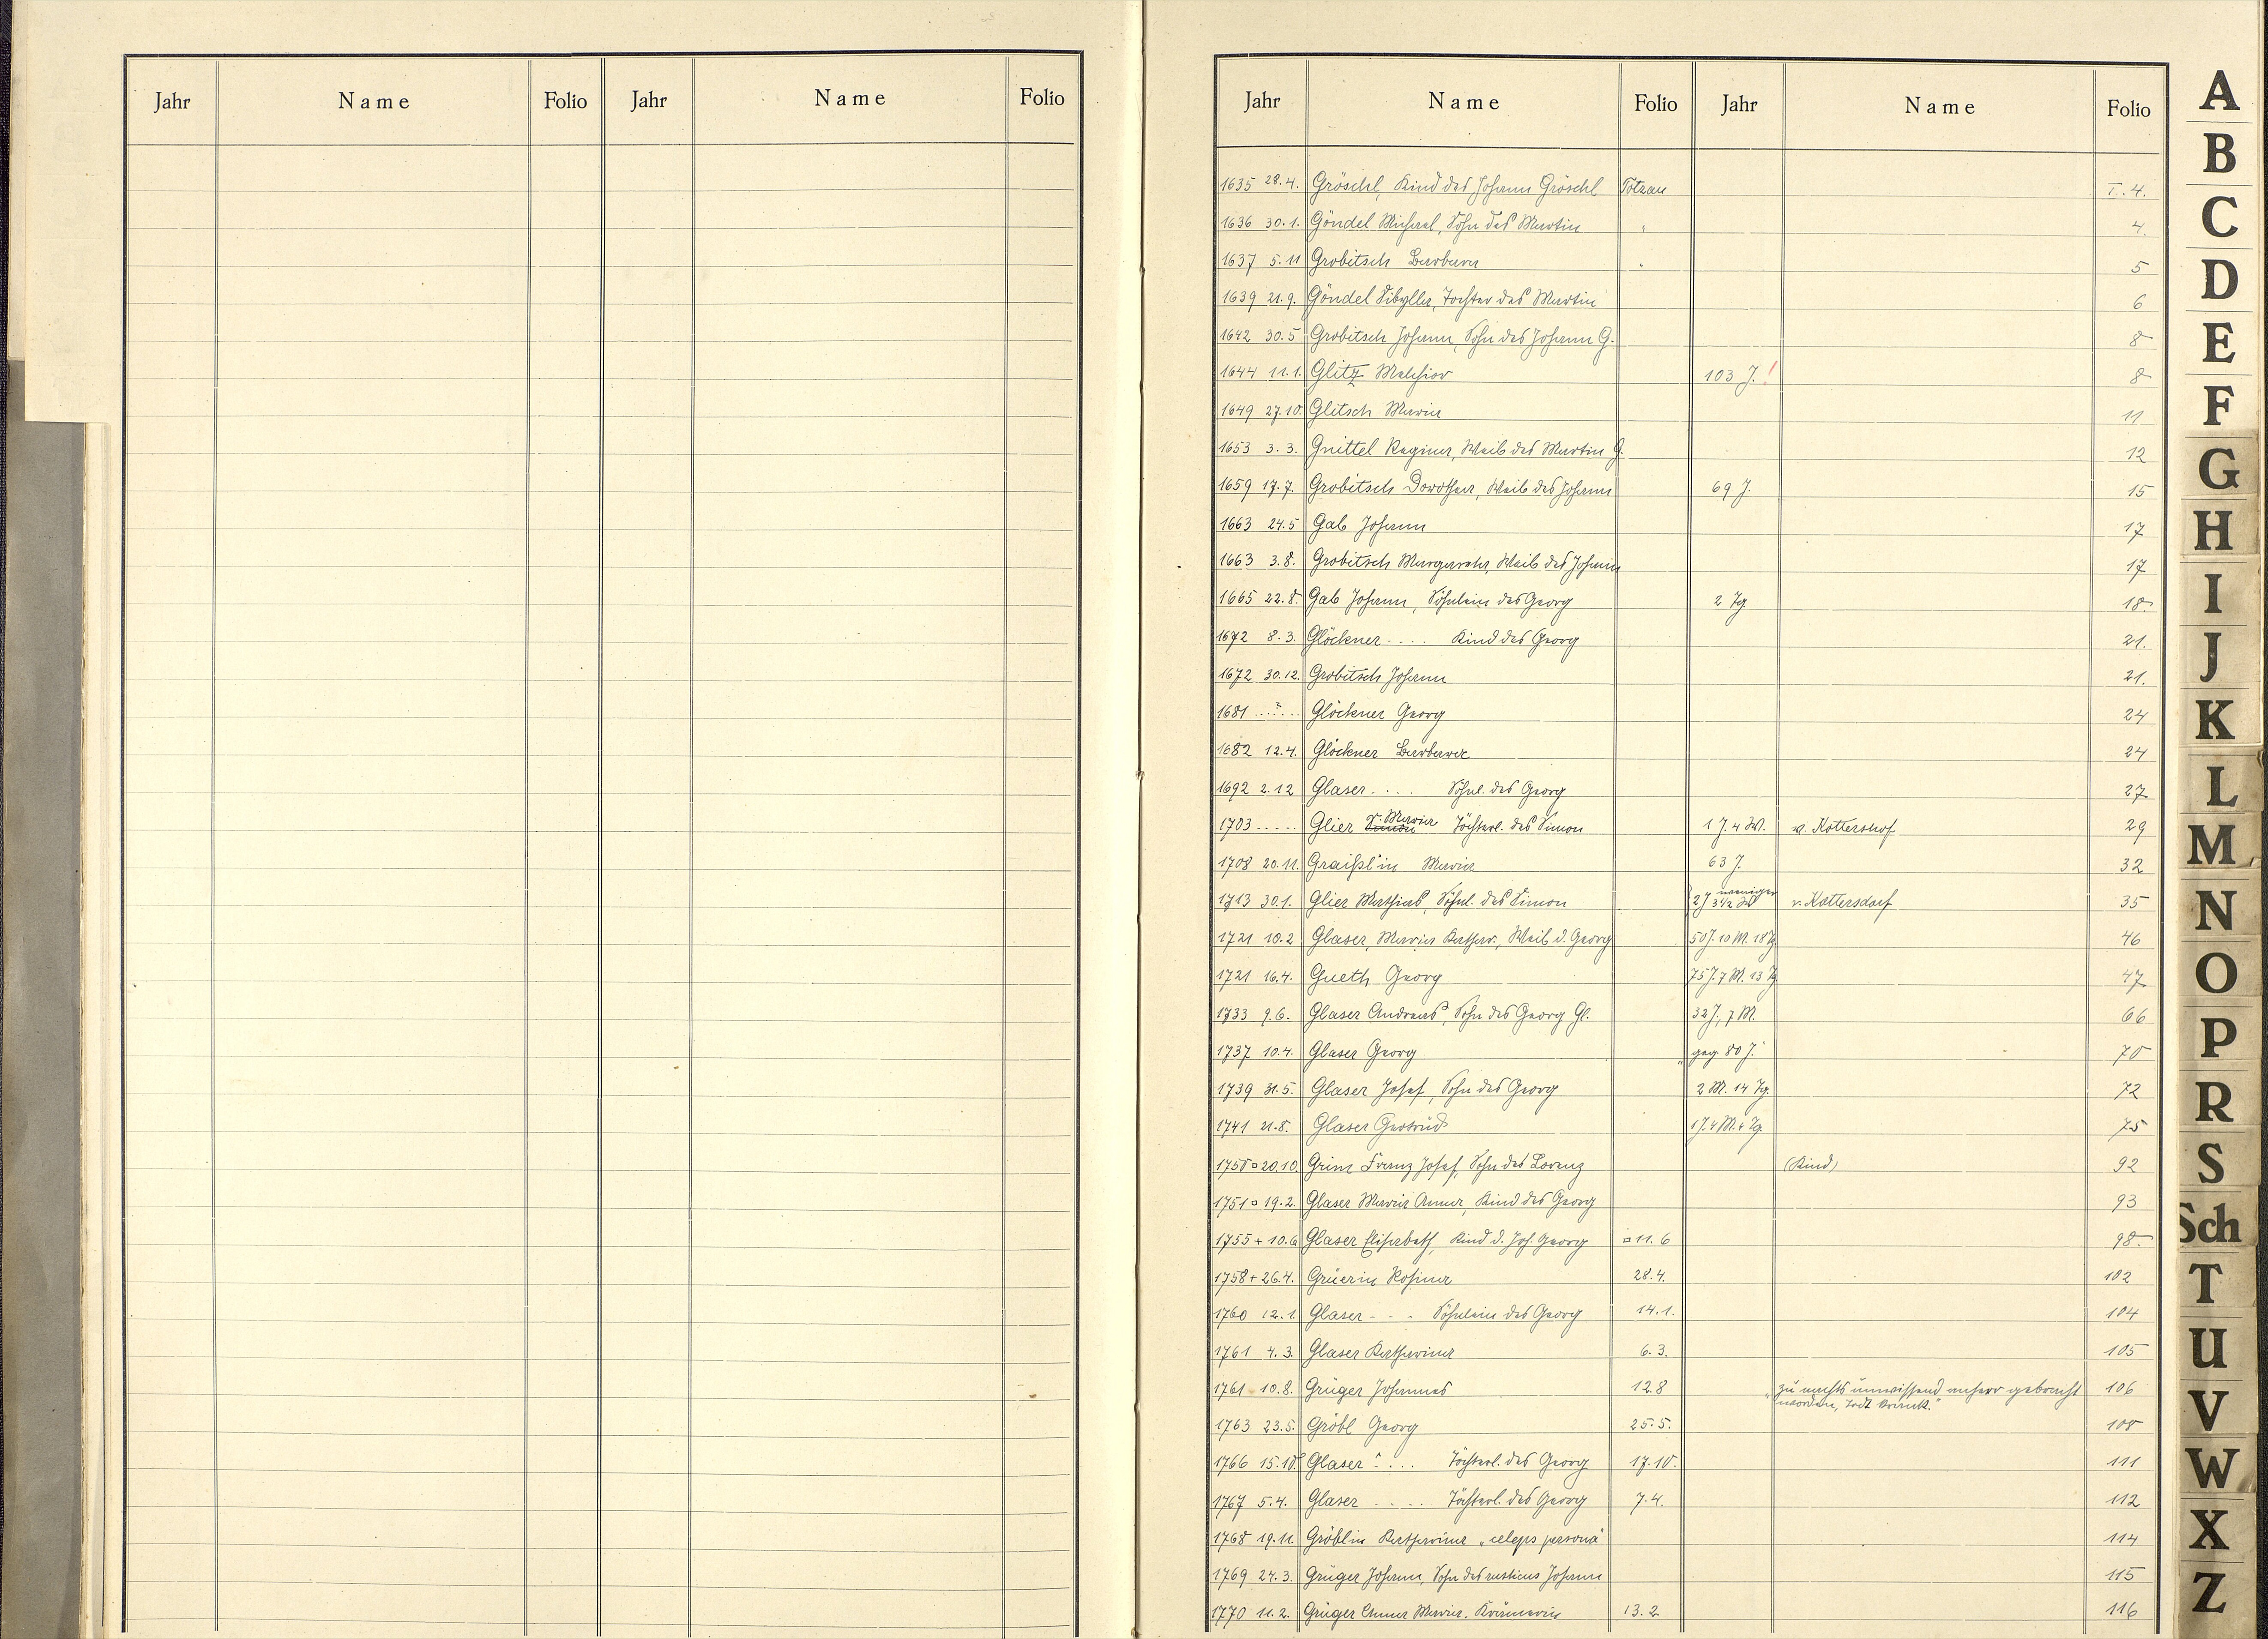 Jahr Name Folio Jahr Name Folio
Jahr Name Folio Jahr Name Folio
1635 28.4. Gröschl, Kind des Johann Gröschl Totzau I. 4.
1636 30.1. Göndel Michael, Sohn des Martin " 4.
1637 5.11 Grobitsch Barbara " 5
1639 21.9. Göndel Sibylla, Tochter des Martin 6
1642 30.5 Grobitsch Johann, Sohn des Johann G. 8
1644 11.1. Glitz Melchior 103 J.! 8
1649 27.10. Glitsch Maria 11
1653 3.3. Gnittel Regina, Weib des Martin G. 12
1659 17.7. Grobitsch Dorothea, Weib des Johann 69 J. 15
1663 24.5 Gab Johann 17
1663 3.8. Grobitsch Margareta, Weib des Johann 17
1665 22.8. Gab Johann, Söhnlein des Georg 2 Tg. 18.
1672 8.3. Glöckner .... Kind des Georg 21.
1672 30.12. Grobitsch Johann 21.
1681 ...?... Glöckner Georg 24
1682 12.4. Glöckner Barbara 24
1692 2.12 Glaser .... Söhnl. des Georg 27
1703 ..... Glier Maria Töchterl. des Simon 1 J. 4 W. v. Kottershof 29
1708 20.11. Graißl'in Maria 63 J. 32
1713 30.1. Glier Mathias, Söhnl. des Simon 2 J weniger 3 1/2 W v. Kottersdorf 35
1721 10.2 Glaser, Maria Kathar., Weib d. Georg 50 J. 10 M. 18 Tg 46
1721 16.4. Gueth Georg 75 J. 7 M. 13 Tg 47
1733 9.6. Glaser Andreas, Sohn des Georg Gl. 32 J., 7 M. 66
1737 10.4. Glaser Georg "geg. 80 J." 70
1739 31.5. Glaser Josef, Sohn des Georg 2 M. 14 Tg. 72
1741 21.8. Glaser Gertrud 1 J. 4 M. 4 Tg. 75
1750 □ 20.10. Grim Franz Josef, Sohn des Lorenz (Kind) 92
1751 □ 19.2. Glaser Maria Anna, Kind des Georg 93
1755 + 10.6 Glaser Elisabeth, Kind d. Joh. Georg □ 11.6 98.
1758 + 26.4. Grüerin Rosina 28.4. 102
1760 12.1. Glaser - - - Söhnlein des Georg 14.1. 104
1761 4.3. Glaser Katharina 6.3. 105
1761 10.8. Grüger Johannes 12.8 "zu nachts unwissend anhero gebracht 106
worden, todt krank."
1763 23.5. Gröbl Georg 25.5. 108
1766 15.10. Glaser .... Töchterl. des Georg 17.10. 111
1767 5.4. Glaser .... Töchterl. des Georg 7.4. 112
1768 19.11. Gröblin Katharina "celeps persona" 114
1769 24.3. Grüger Johann, Sohn des rusticus Johann 115
1770 11.2. Grüger Anna Maria. Krämerin 13.2 116
A
B
C
D
E
F
G
H
I
J
K
L
M
N
O
P
R
S
Sch
T
U
V
W
X
Z